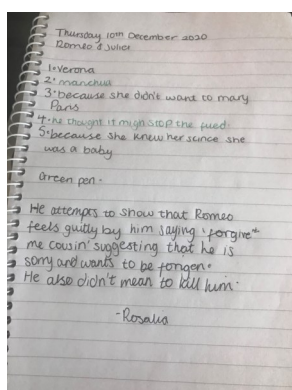 Thursday 10th December 2020
Romeo & Juliet
1. Verona
2. manchua
3. because she didn't want to mary
Paris
4. he thought it migh stop the fued.
5. because she knew her scince she
was a baby
Green pen.
He attemps to show that Romeo
feels guilty by him saying 'forgive
me cousin' suggesting that he is
sorry and wants to be forgen.
He also didn't mean to kill him.
-Rosalia